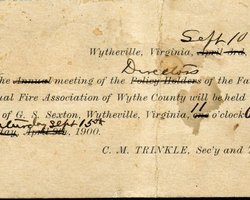 Sept 10
Wytheville, Virginia, April 3rd
Directors
he Annual meeting of the Policy Holders of the Fa
ual Fire Association of Wythe County will be held
of G. S. Sexton, Wytheville, Virginia, one 11 o'clock
aturday Sept 15th
day, April, 1900.
C. M. TRINKLE, Sec'y and T